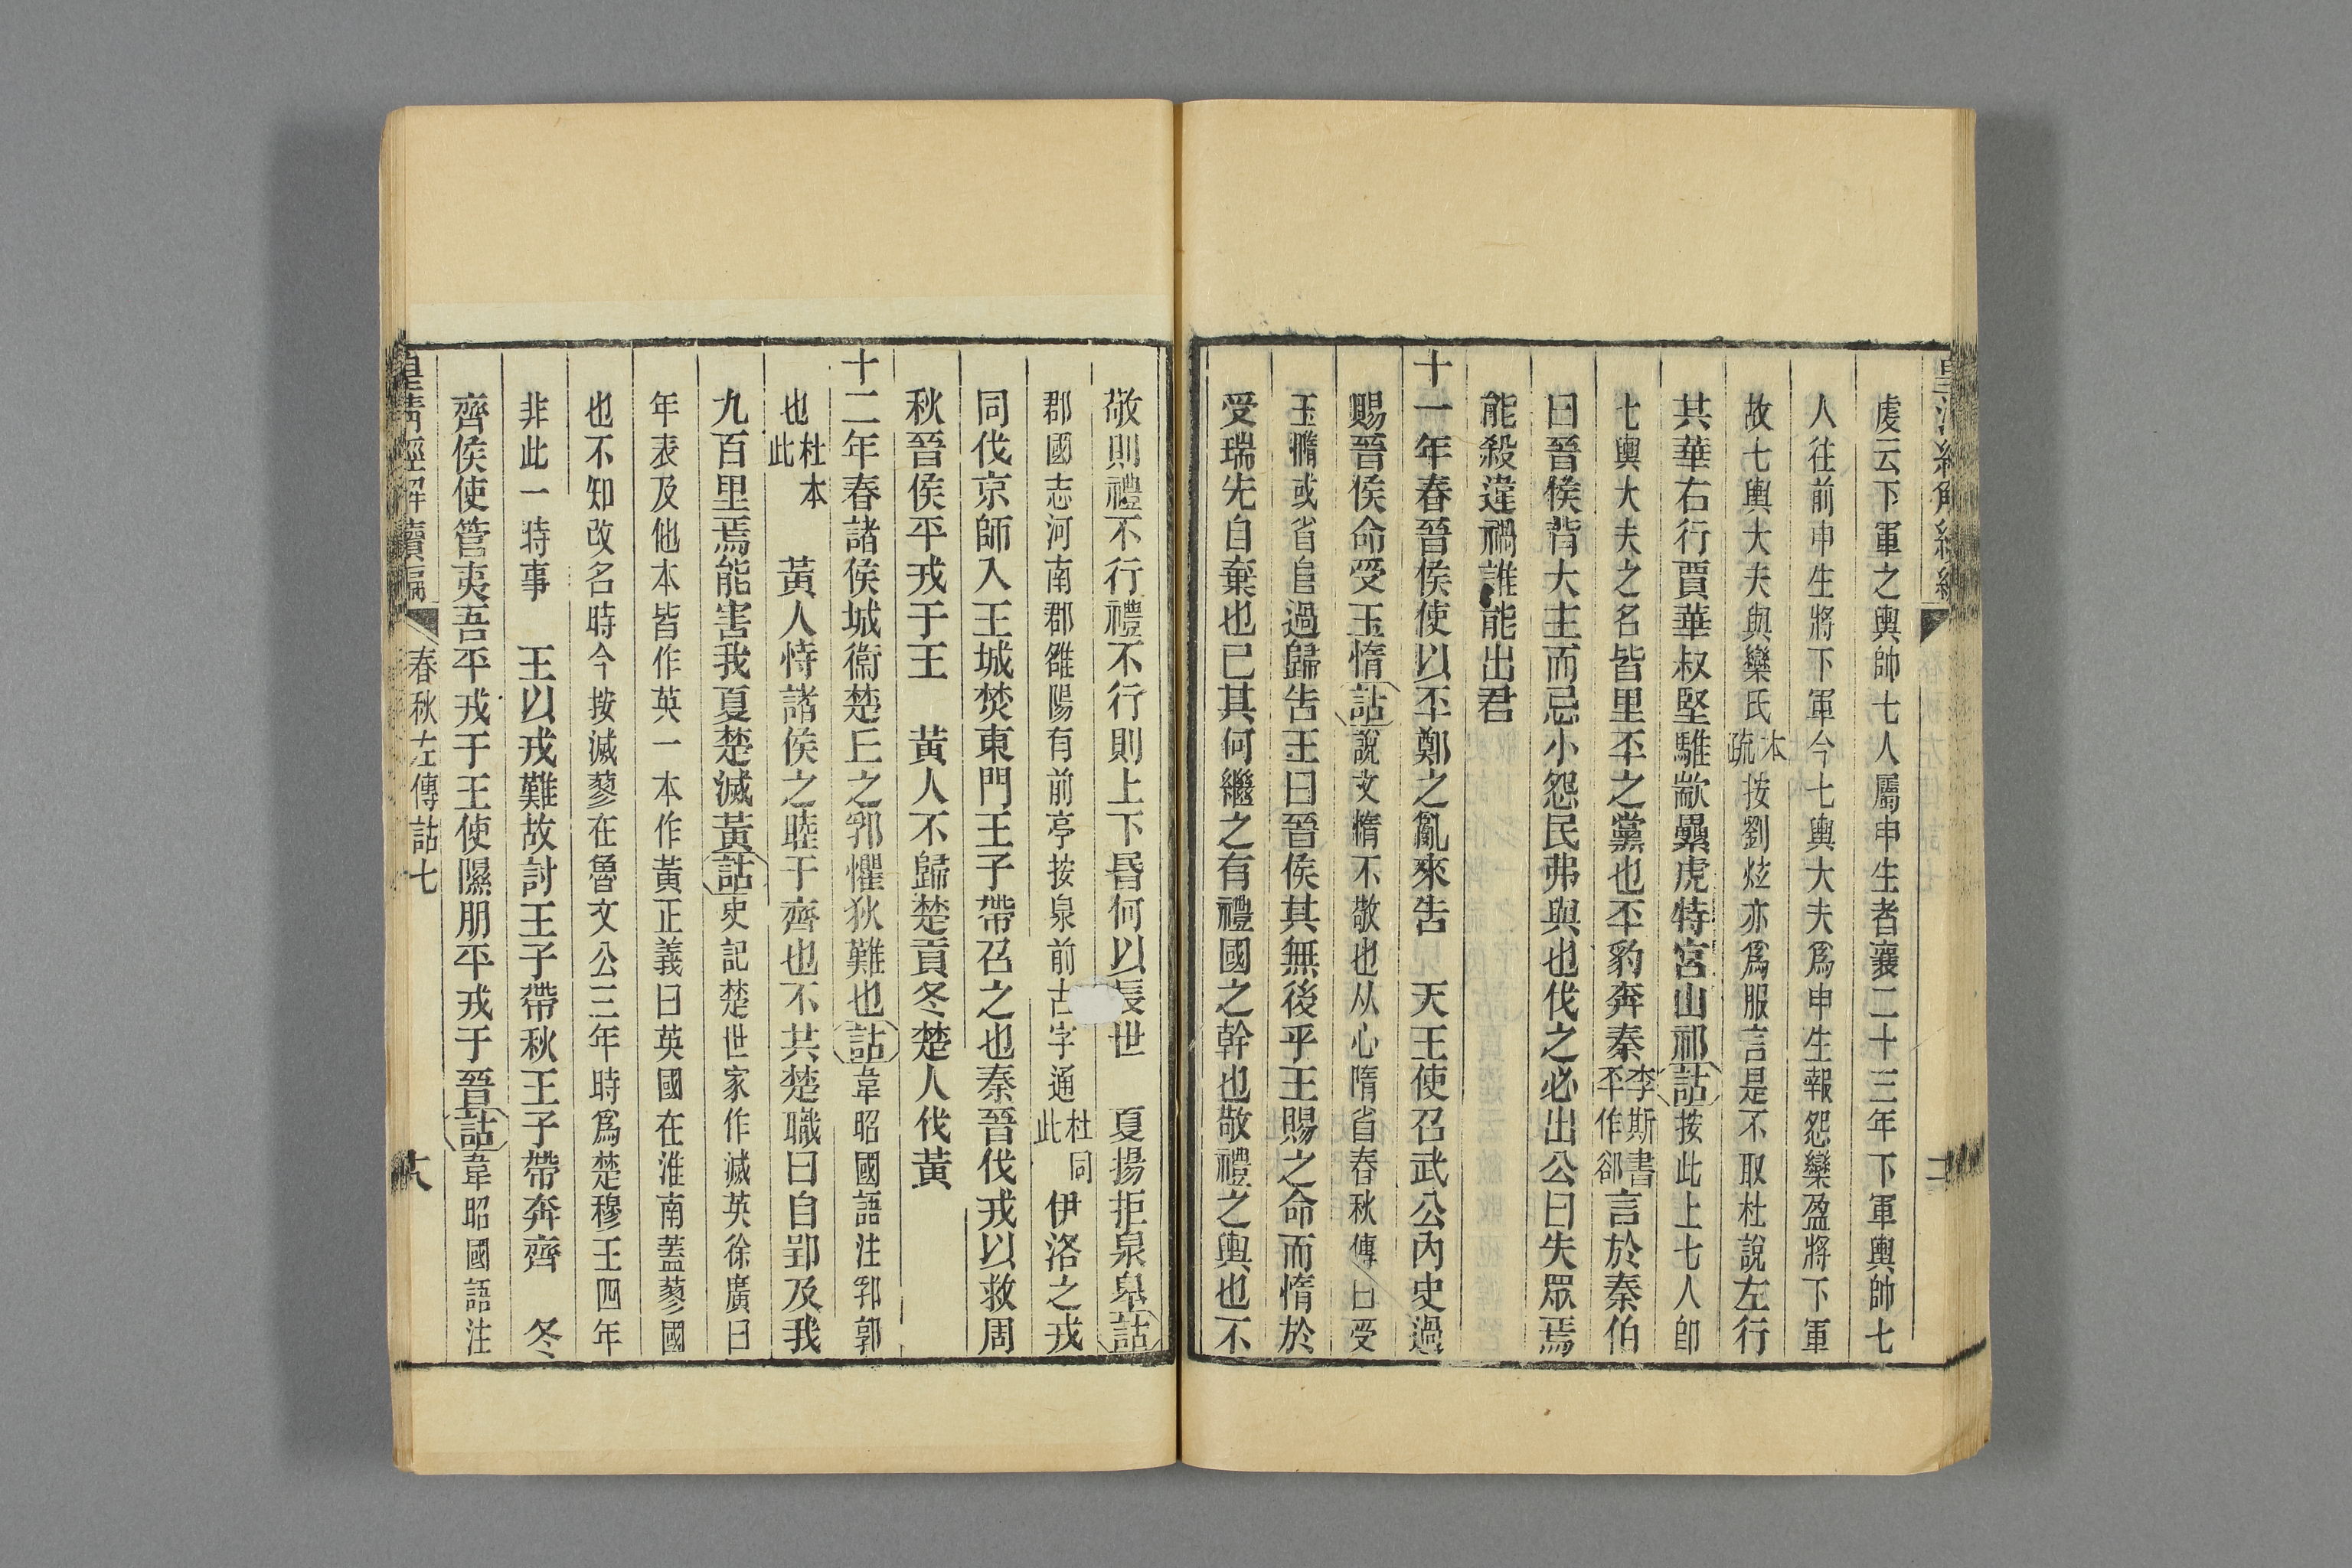 虔云下軍之輿帥七人屬申生者襄二十三年下軍輿帥七
人往前申生將下軍今七輿大夫爲申生報怨欒盈將下軍
故七輿大夫與欒氏本疏按劉炫亦爲服言是不取杜說左行
其華右行賈華叔堅騅歂纍虎特宮山祁詁按此上七人卽
七輿大夫之名皆里丕之黨也丕豹奔秦李斯書丕作邳言於秦伯
曰晉侯背大主而忌小怨民弗與也伐之必出公曰失眾焉
能殺違禍誰能出君
十一年春晉侯使以丕鄭之亂來告　天王使召武公內史過
賜晉侯命受玉惰詁說文憜不敬也从心隋省春秋傳曰受
玉憜或省𨸏過歸告王曰晉侯其無後乎王賜之命而惰於
受瑞先自棄也已其何繼之有禮國之幹也敬禮之輿也不
敬則禮不行禮不行則上下昏何以長世　夏揚拒泉皋詁
郡國志河南郡雒陽有前亭按泉前古字通杜同此伊洛之戎
同伐京師入王城焚東門王子帶召之也秦晉伐戎以救周
秋晉侯平戎于王　黃人不歸楚貢冬楚人伐黃
十二年春諸侯城衞楚丘之郛懼狄難也詁韋昭國語注郛郭
也杜本此　黃人恃諸侯之睦于齊也不共楚職曰自郢及我
九百里焉能害我夏楚滅黃詁史記楚世家作滅英徐廣曰
年表及他本皆作英一本作黃正義曰英國在淮南蓋蓼國
也不知改名時今按滅蓼在魯文公三年時爲楚穆王四年
非此一時事　王以戎難故討王子帶秋王子帶奔齊　冬
齊侯使管夷吾平戎于王使隰朋平戎于晉詁韋昭國語注
皇清經解續編　春秋左傳詁七　十八